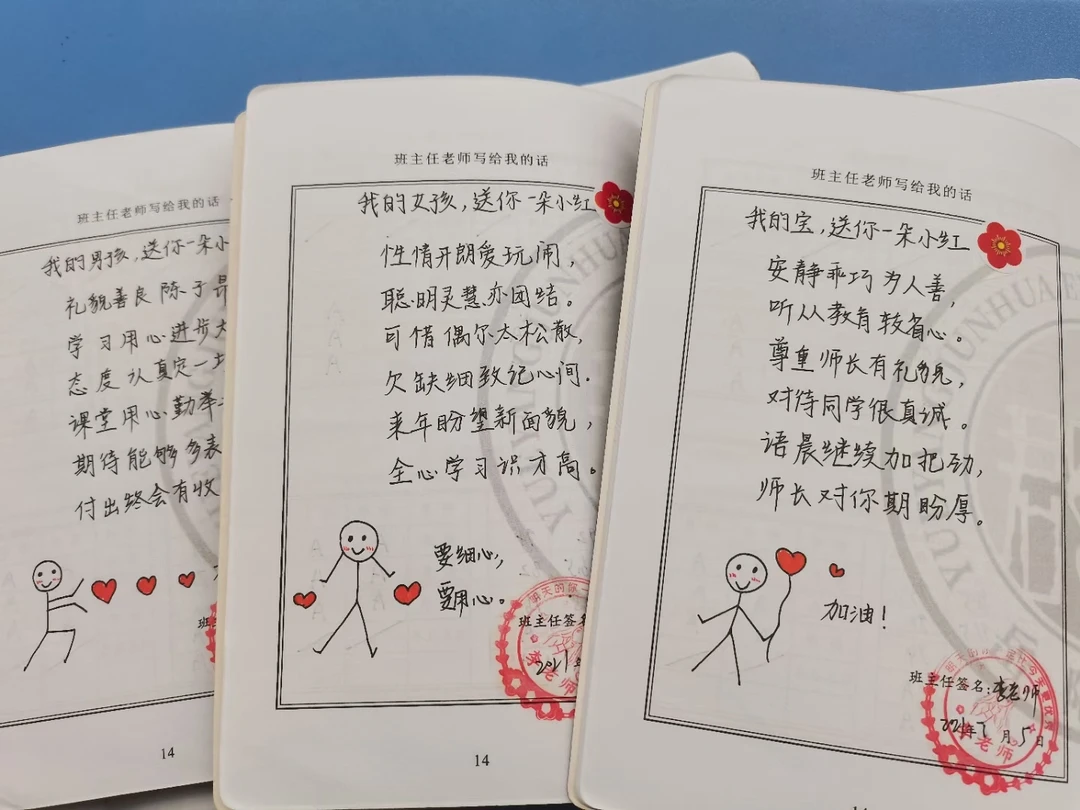 班主任老师写给我的话
我的男孩，送你一朵小
礼貌善良陈子昂
学习用心进步大
态度认真定一
课堂用心勤举
期待能够多表
付出终会有收
14
班主任老师写给我的话
我的女孩，送你一朵小红
性情开朗爱玩闹，
聪明灵慧亦团结。
可惜偶尔太松散，
欠缺细致记心间.
来年盼望新面貌，
全心学习识才高。
要细心，
要用心。
班主任签名
2021年
14
班主任老师写给我的话
我的宝，送你一朵小红
安静乖巧为人善，
听从教育较省心。
尊重师长有礼貌，
对待同学很真诚。
语晨继续加把劲，
师长对你期盼厚。
加油！
班主任签名：李老师
2021年7月5日
李老师